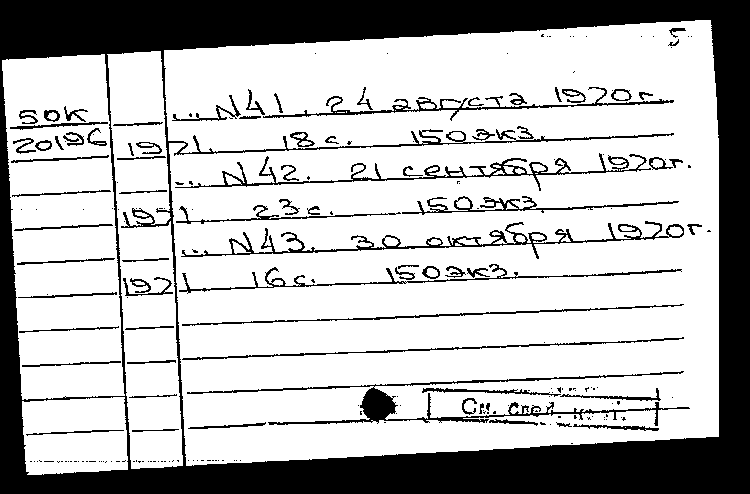 5
50К ... N41. 24 августа 1970г.
20196 1971. 18с. 150экз.
... N42. 21 сентября 1970г.
1971. 23с. 150экз.
... N43. 30 октября 1970г.
1971. 16с. 150экз.
См. след.